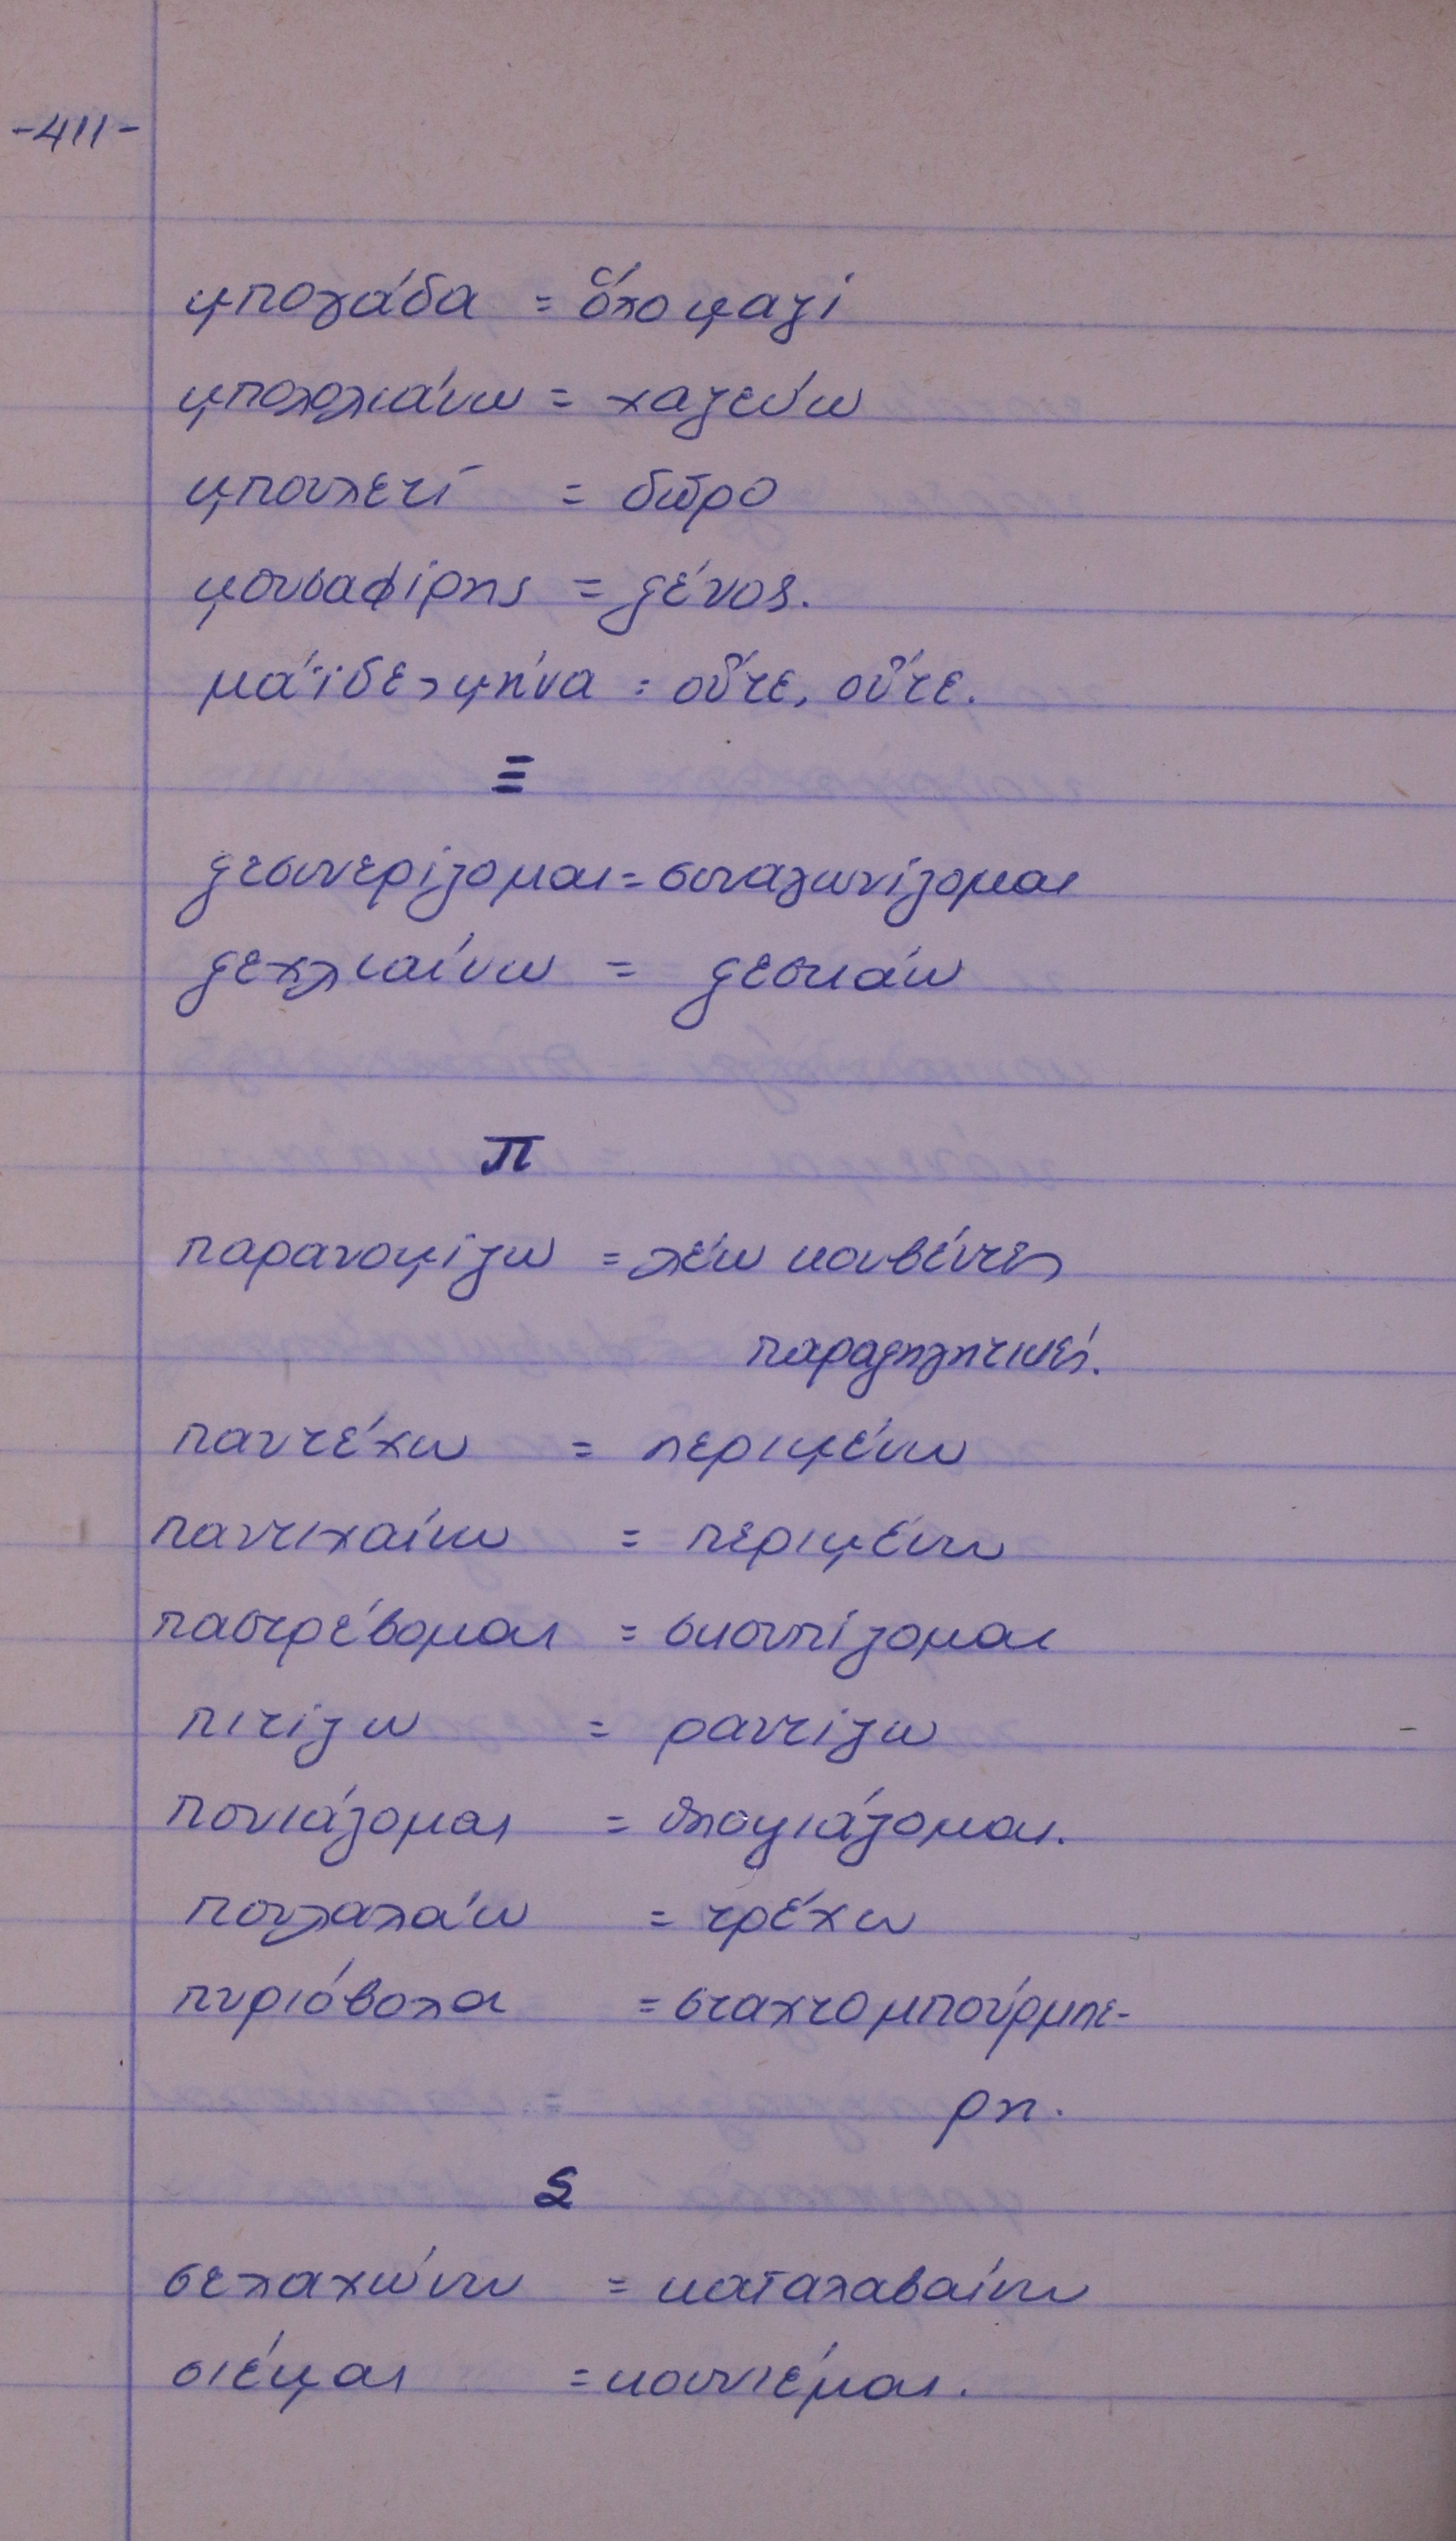 -411-
μπολάδα = ὅλο μαζί
μπολολιάνω = χαζεύω
μπουλετί = δῶρο
μουσαφίρης = ξένος.
μάϊδε, μήνα = οὔτε, οὔτε.
Ξ
ξεσυνερίζομαι = συναγωνίζομαι
ξεχλιαίνω = ξεσκάω
Π
παρανομίζω = λέω κουβέντες
παραξηλητικές.
παντέχω = περιμένω
παντιχαίνω = περιμένω
παστρέβομαι = σκουπίζομαι
πιτίζω = ραντίζω
πονιάζομαι = ὑποψιάζομαι.
πουλαλάω = τρέχω
πυριόβολα = σταχτομπούρμπε-
ρη.
Σ
σελαχώνω = καταλαβαίνω
σιέμαι = κουνιέμαι.